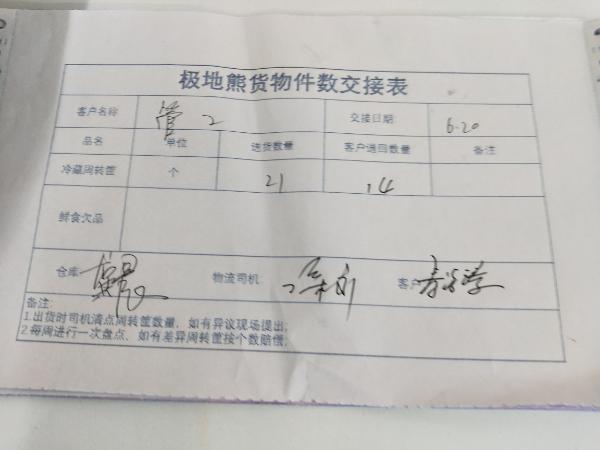 极地熊货物件数交接表
客户名称 管2 交接日期 6.20
品名 单位 送货数量 客户退回数量 备注
冷藏周转筐 个 21 14
鲜食欠品
仓库 物流司机 客户
备注:
1.出货时司机清点周转筐数量，如有异议现场提出;
2.每周进行一次盘点，如有差异周转筐按个数赔偿;